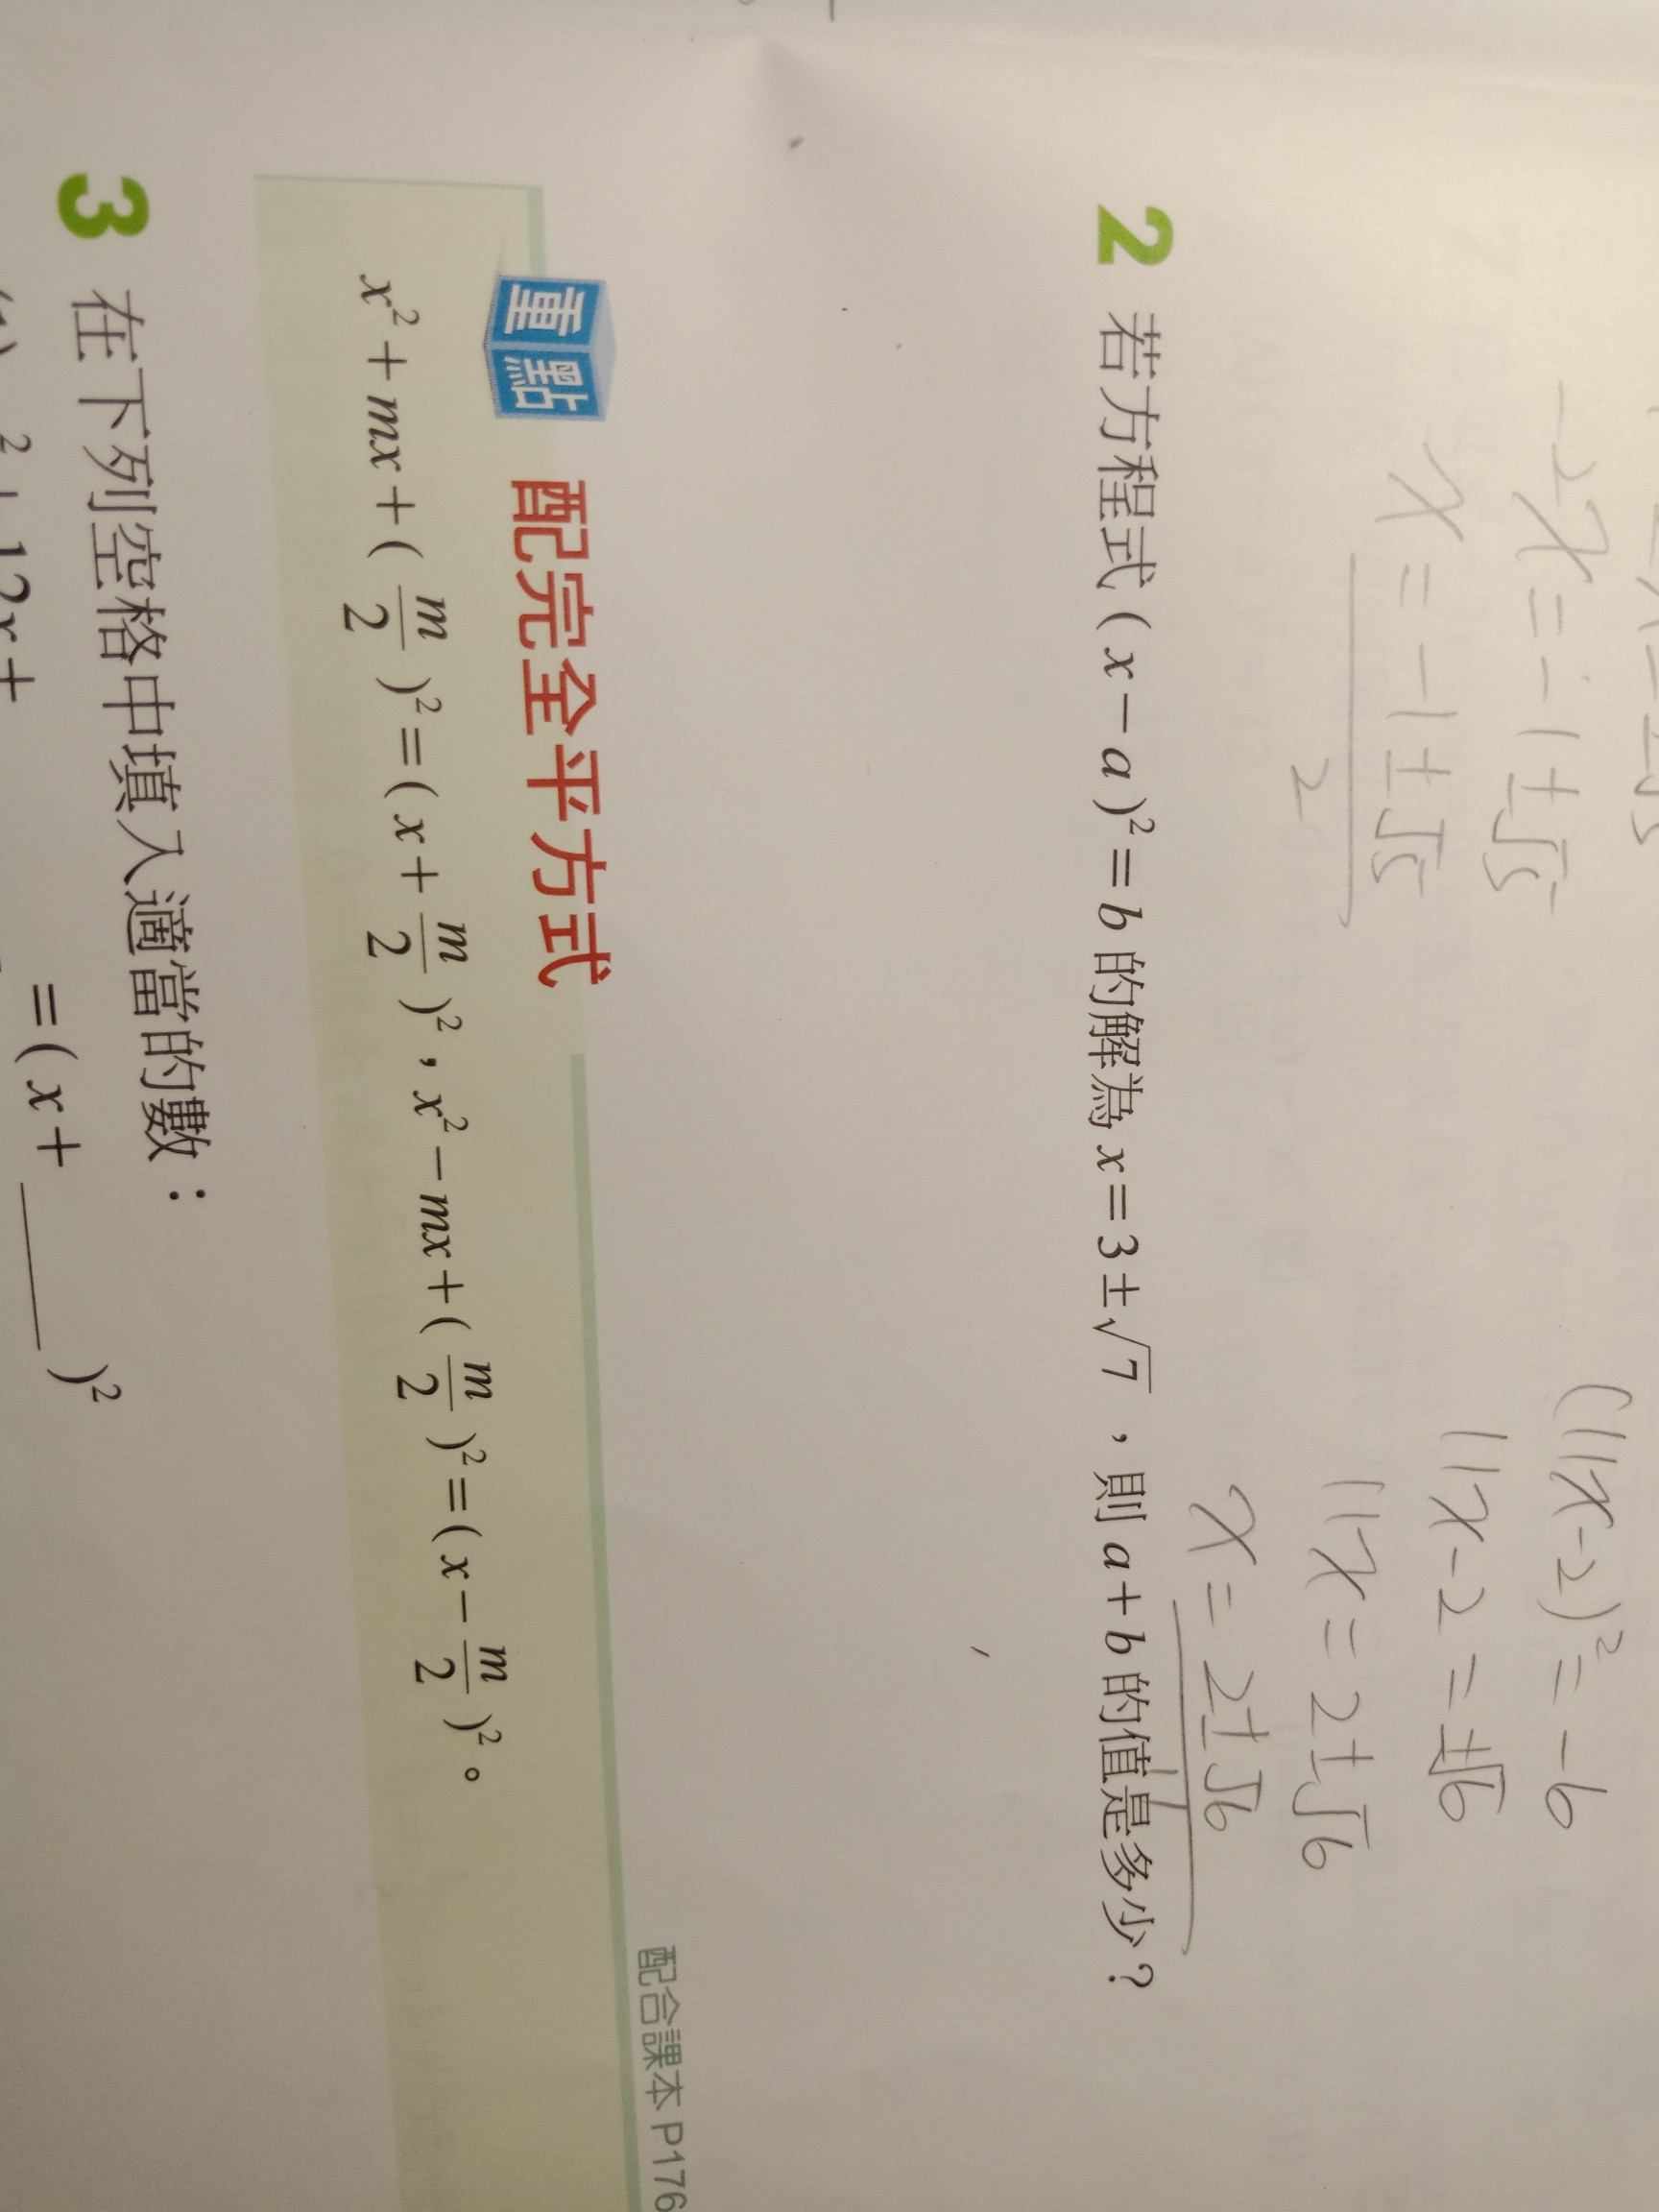 -2x=-1±√5
x=-1±√5
2
(11x-2)²=-6
11x-2=±√6
11x=2±√6
x=2±√6
11
2 若方程式(x-a)²=b的解為x=3±√7，則a+b的值是多少？
配合課本P176
重點 配完全平方式
x²+mx+(m/2)²=(x+m/2)²，x²-mx+(m/2)²=(x-m/2)²。
3 在下列空格中填入適當的數：
=(x+____)²